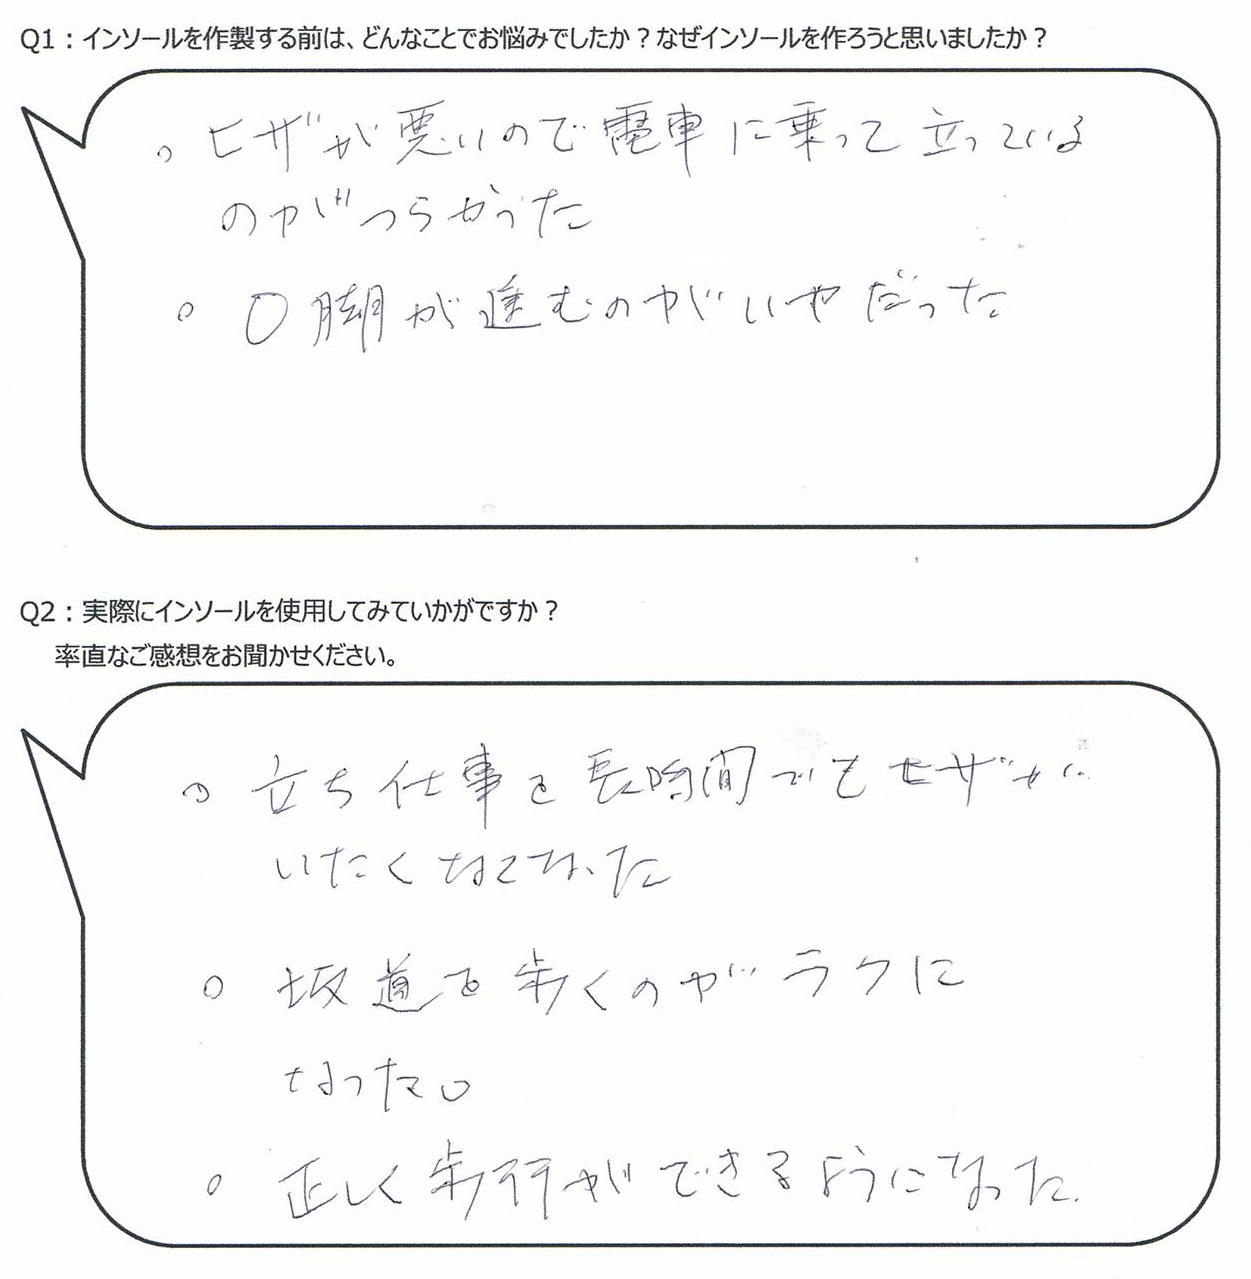 Q1：インソールを作製する前は、どんなことでお悩みでしたか？なぜインソールを作ろうと思いましたか？
。ヒザが悪いので電車に乗って立っている
のがつらかった
。O脚が進むのがいやだった
Q2：実際にインソールを使用してみていかがですか？
率直なご感想をお聞かせください。
。立ち仕事を長時間でもヒザが
いたくなくなった
。坂道を歩くのがラクに
なった。
。正しく歩行ができるようになった.